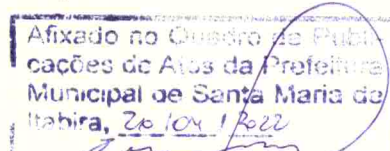 Afixado no Quadro de Publi-
cações de Atos da Prefeitura
Municipal de Santa Maria de
Itabira, 20/04/2022